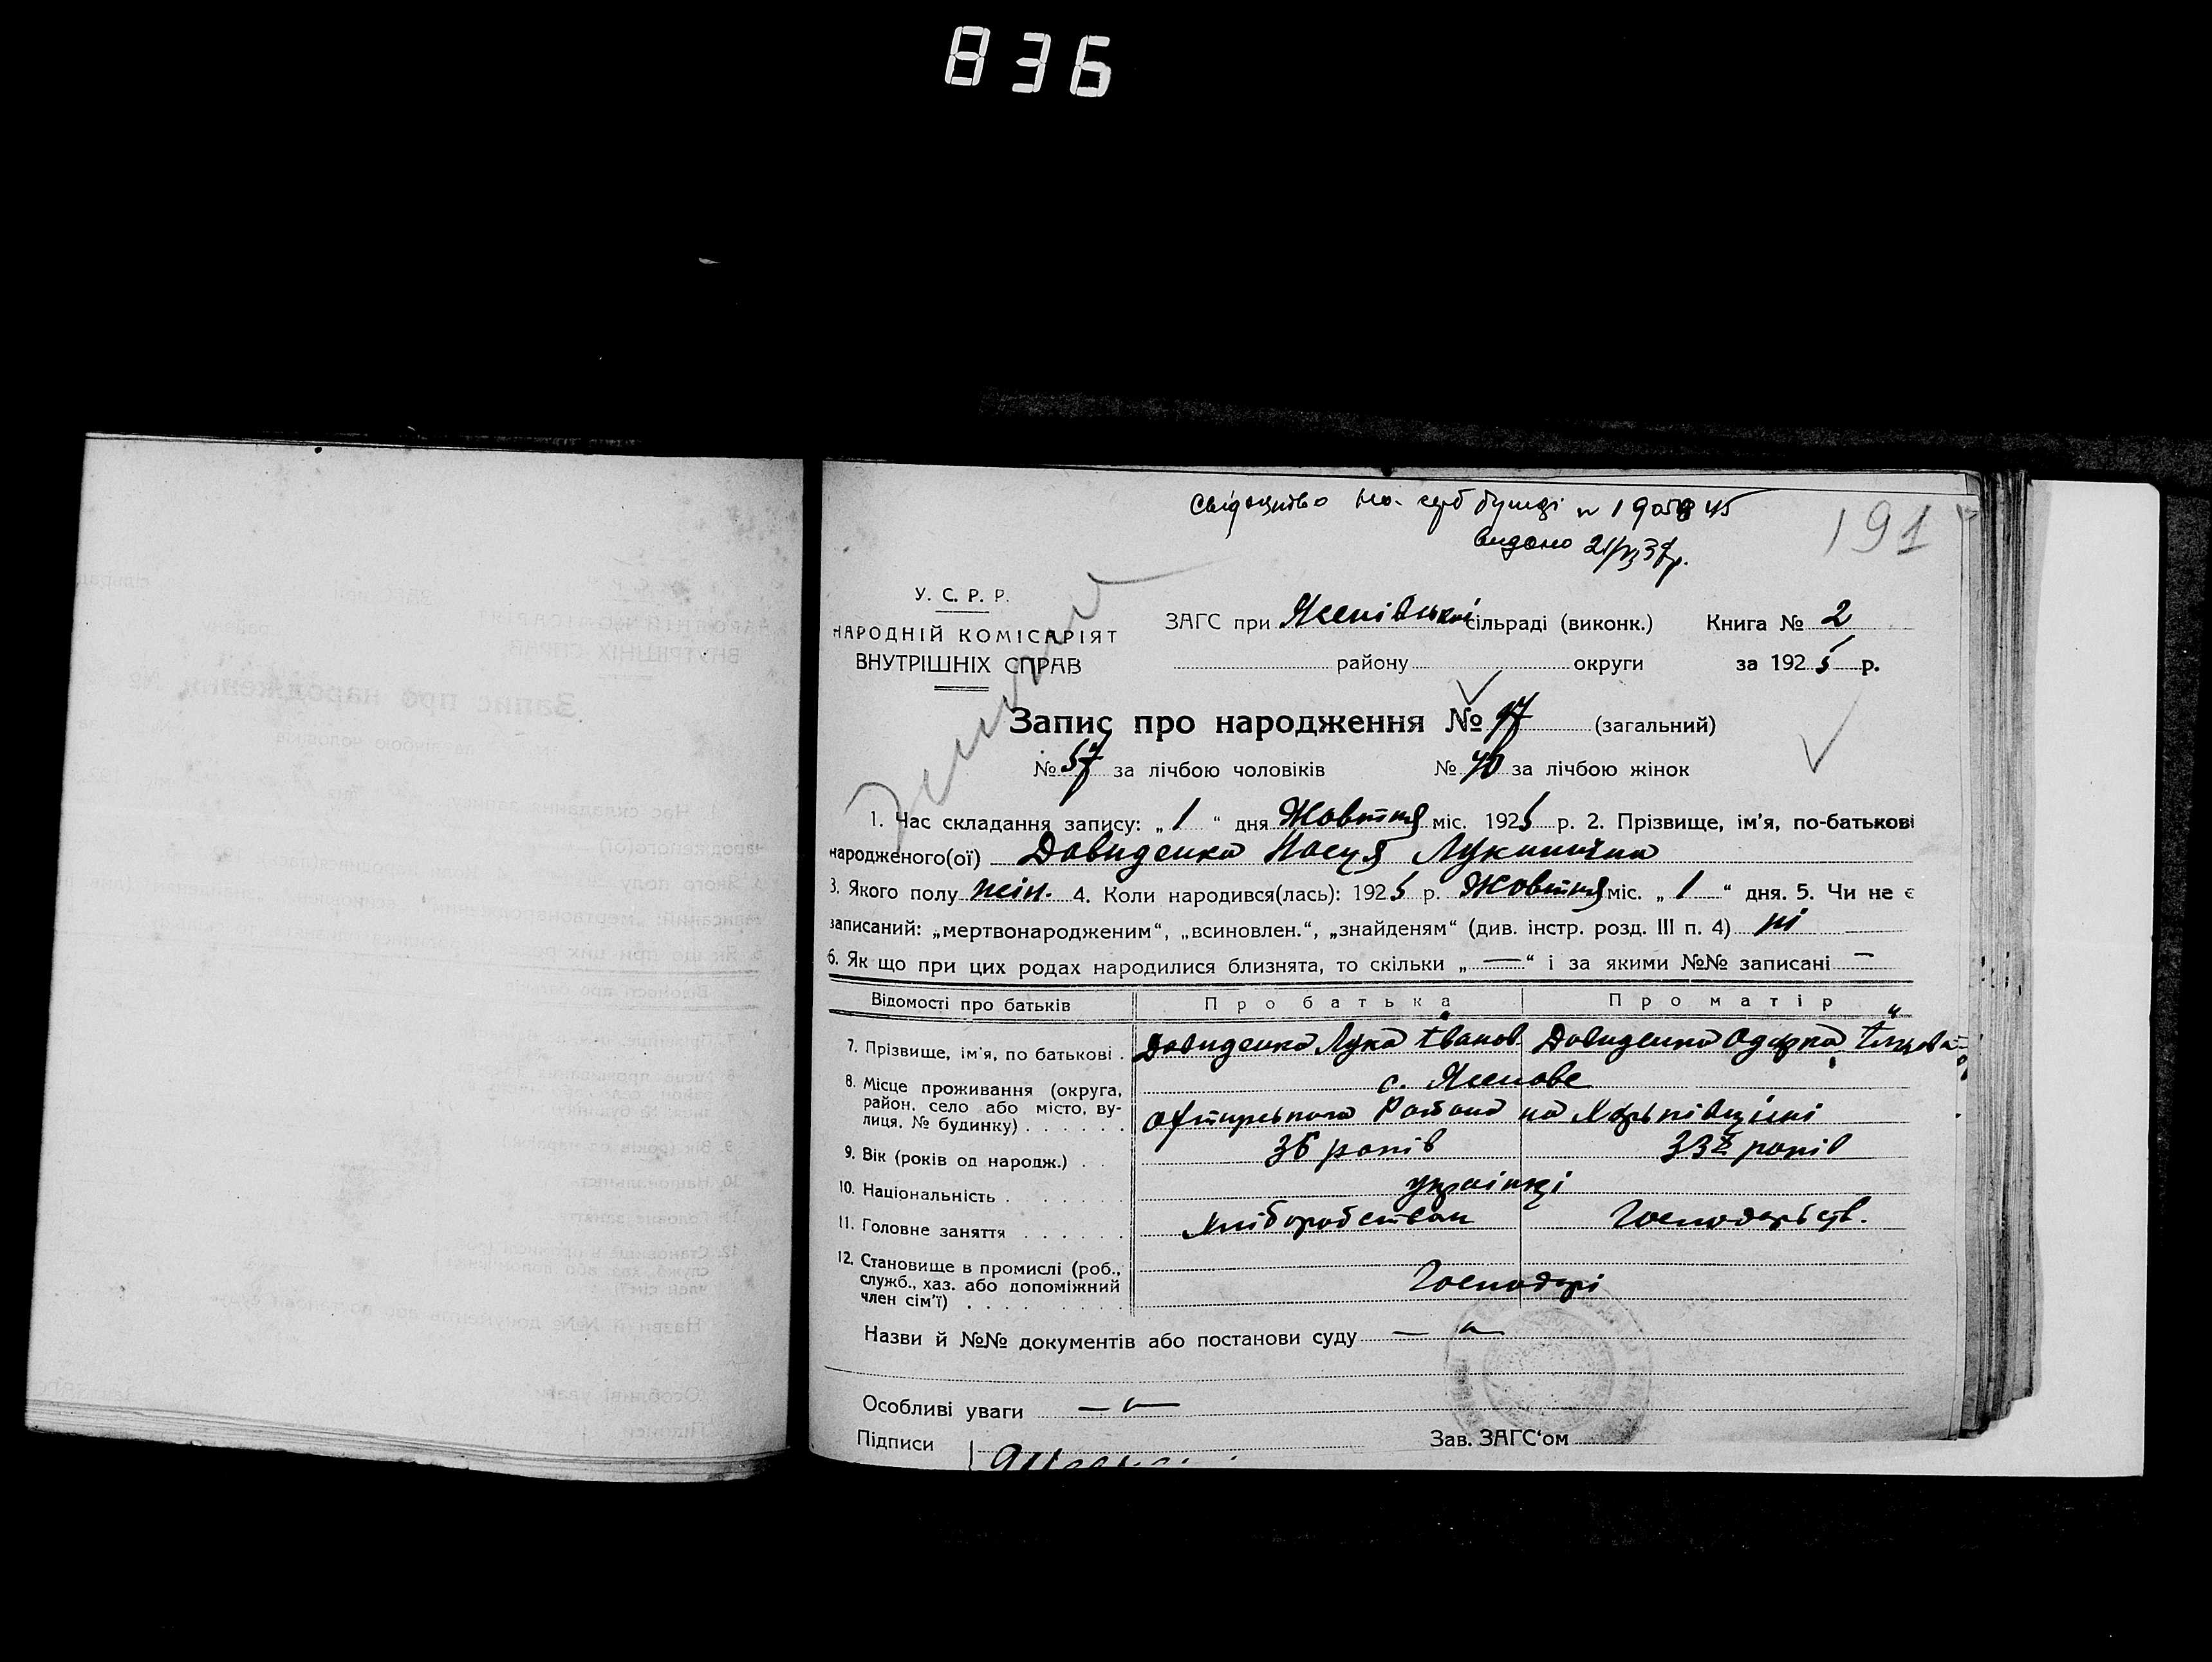 836
Свідоцтво на
видано
191
У. С. Р. Р.
НАРОДНІЙ КОМІСАРІЯТ
ВНУТРІШНІХ СПРАВ
ЗАГС при Ясенівській сільраді (виконк.) Книга № 2
району округи за 1925 р.
Запис про народження № 97 (загальний)
№ 57 за лічбою чоловіків № 40 за лічбою жінок
1. Час складання запису: „1“ дня Жовтня міс. 1925 р. 2. Прізвище, ім'я, по-батькові
народженого(ої) Давиденко
3. Якого полу жін. 4. Коли народився(лась): 1925 р. Жовтня міс. „1“ дня. 5. Чи не є
записаний: „мертвонародженим“, „всиновлен.“, „знайденям“ (див. інстр. розд. III п. 4) ні
6. Як що при цих родах народилися близнята, то скільки „—“ і за якими №№ записані —
Відомості про батьків Про батька Про матір
7. Прізвище, ім'я, по батькові . Давиденко Лука Іванов. Давиденко Одарка
8. Місце проживання (округа, с. Ясенове
район, село або місто, ву-
лиця, № будинку) . . . . . . на Харьківщині
9. Вік (років од народж.) . . 36 років років
10. Національність . . . . . . українці
11. Головне заняття . . . . . . хліборобством Господарств.
12. Становище в промислі (роб.,
служб., хаз. або допоміжний Господарі
член сім'ї) . . . . . . . .
Назви й №№ документів або постанови суду — „ —
Особливі уваги — „ —
Підписи Зав. ЗАГС'ом